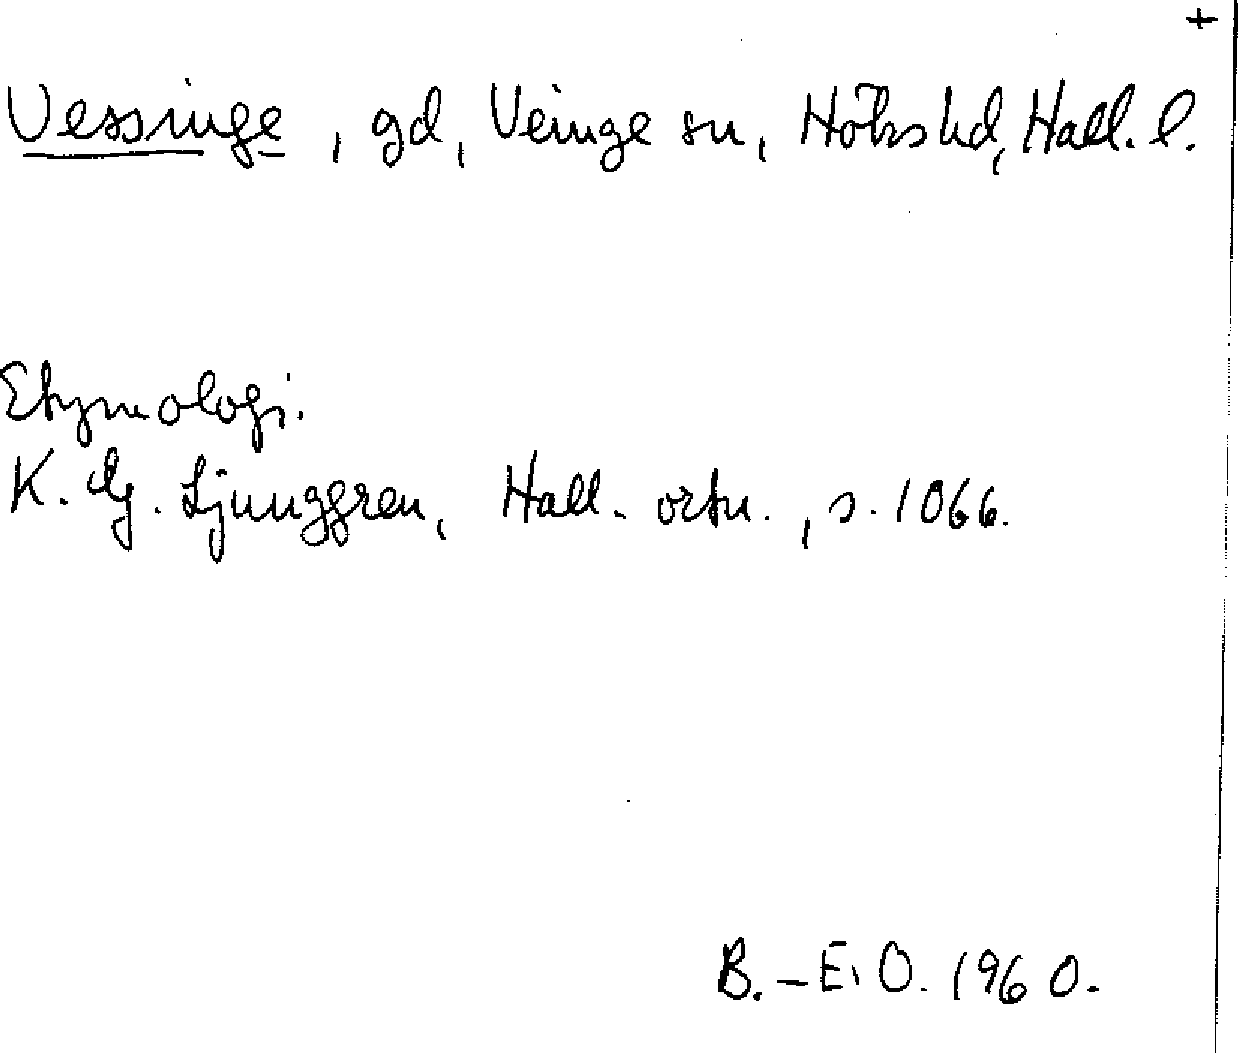 +
Vessinge, gd, Veinge sn, Höks hd, Hall. l.
Etymologi.
K. G. Ljunggren, Hall. ortn., s. 1066.
B.-E. O. 1960.